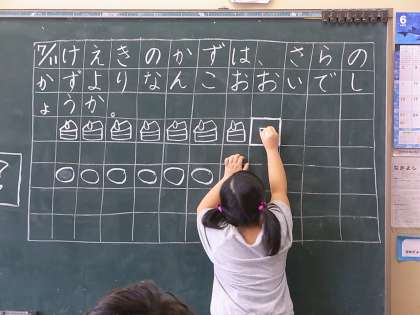 7/11 けえきのかずは、さらの
かずよりなんこおおいでし
ょうか。
?
6